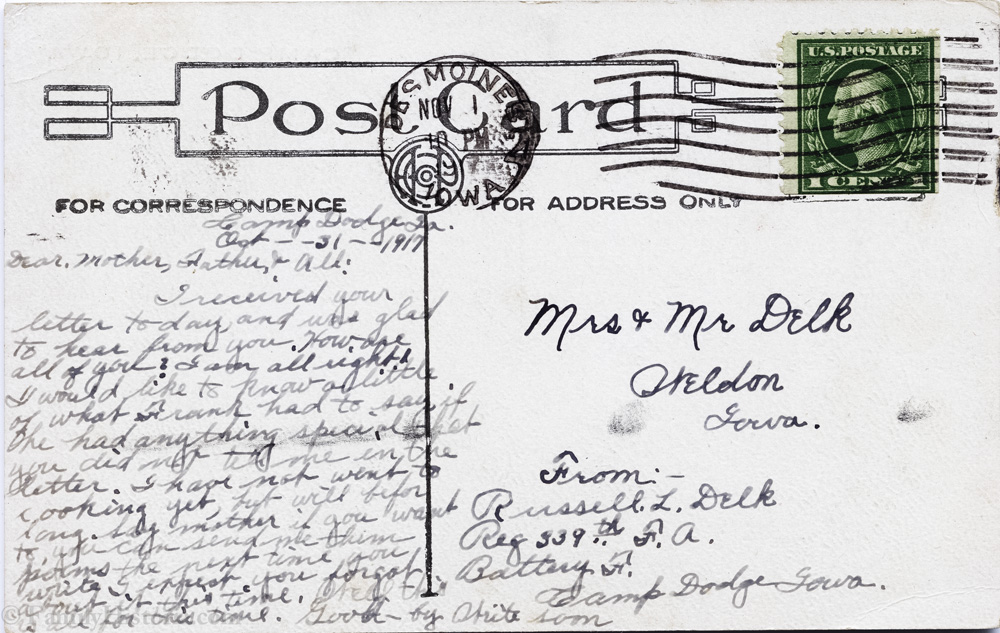 Post Card
DES MOINES
NOV 1
10 PM
IOWA
U.S. POSTAGE
1 CENT 1
FOR CORRESPONDENCE
FOR ADDRESS ONLY
Camp Dodge Ia.
Oct - - 31 - - 1917
Dear. Mother, Father, & All:
I received your
letter to day, and was glad
to hear from you. How are
all of you? I am all right!
I would like to know a little
of what Frank had to say, if
he had anything special that
you did not tell me in the
letter. I have not went to
cooking yet, but will before
long. Say mother if you want
to you can send me them
poems the next time you
write I expect you forgot
about it this time. Well this
is all for this time. Good-by Write soon
Mrs & Mr Delk
Weldon
Iowa.
From:-
Russell. L. Delk
Reg 339th F. A.
Battery F.
Camp Dodge Iowa.